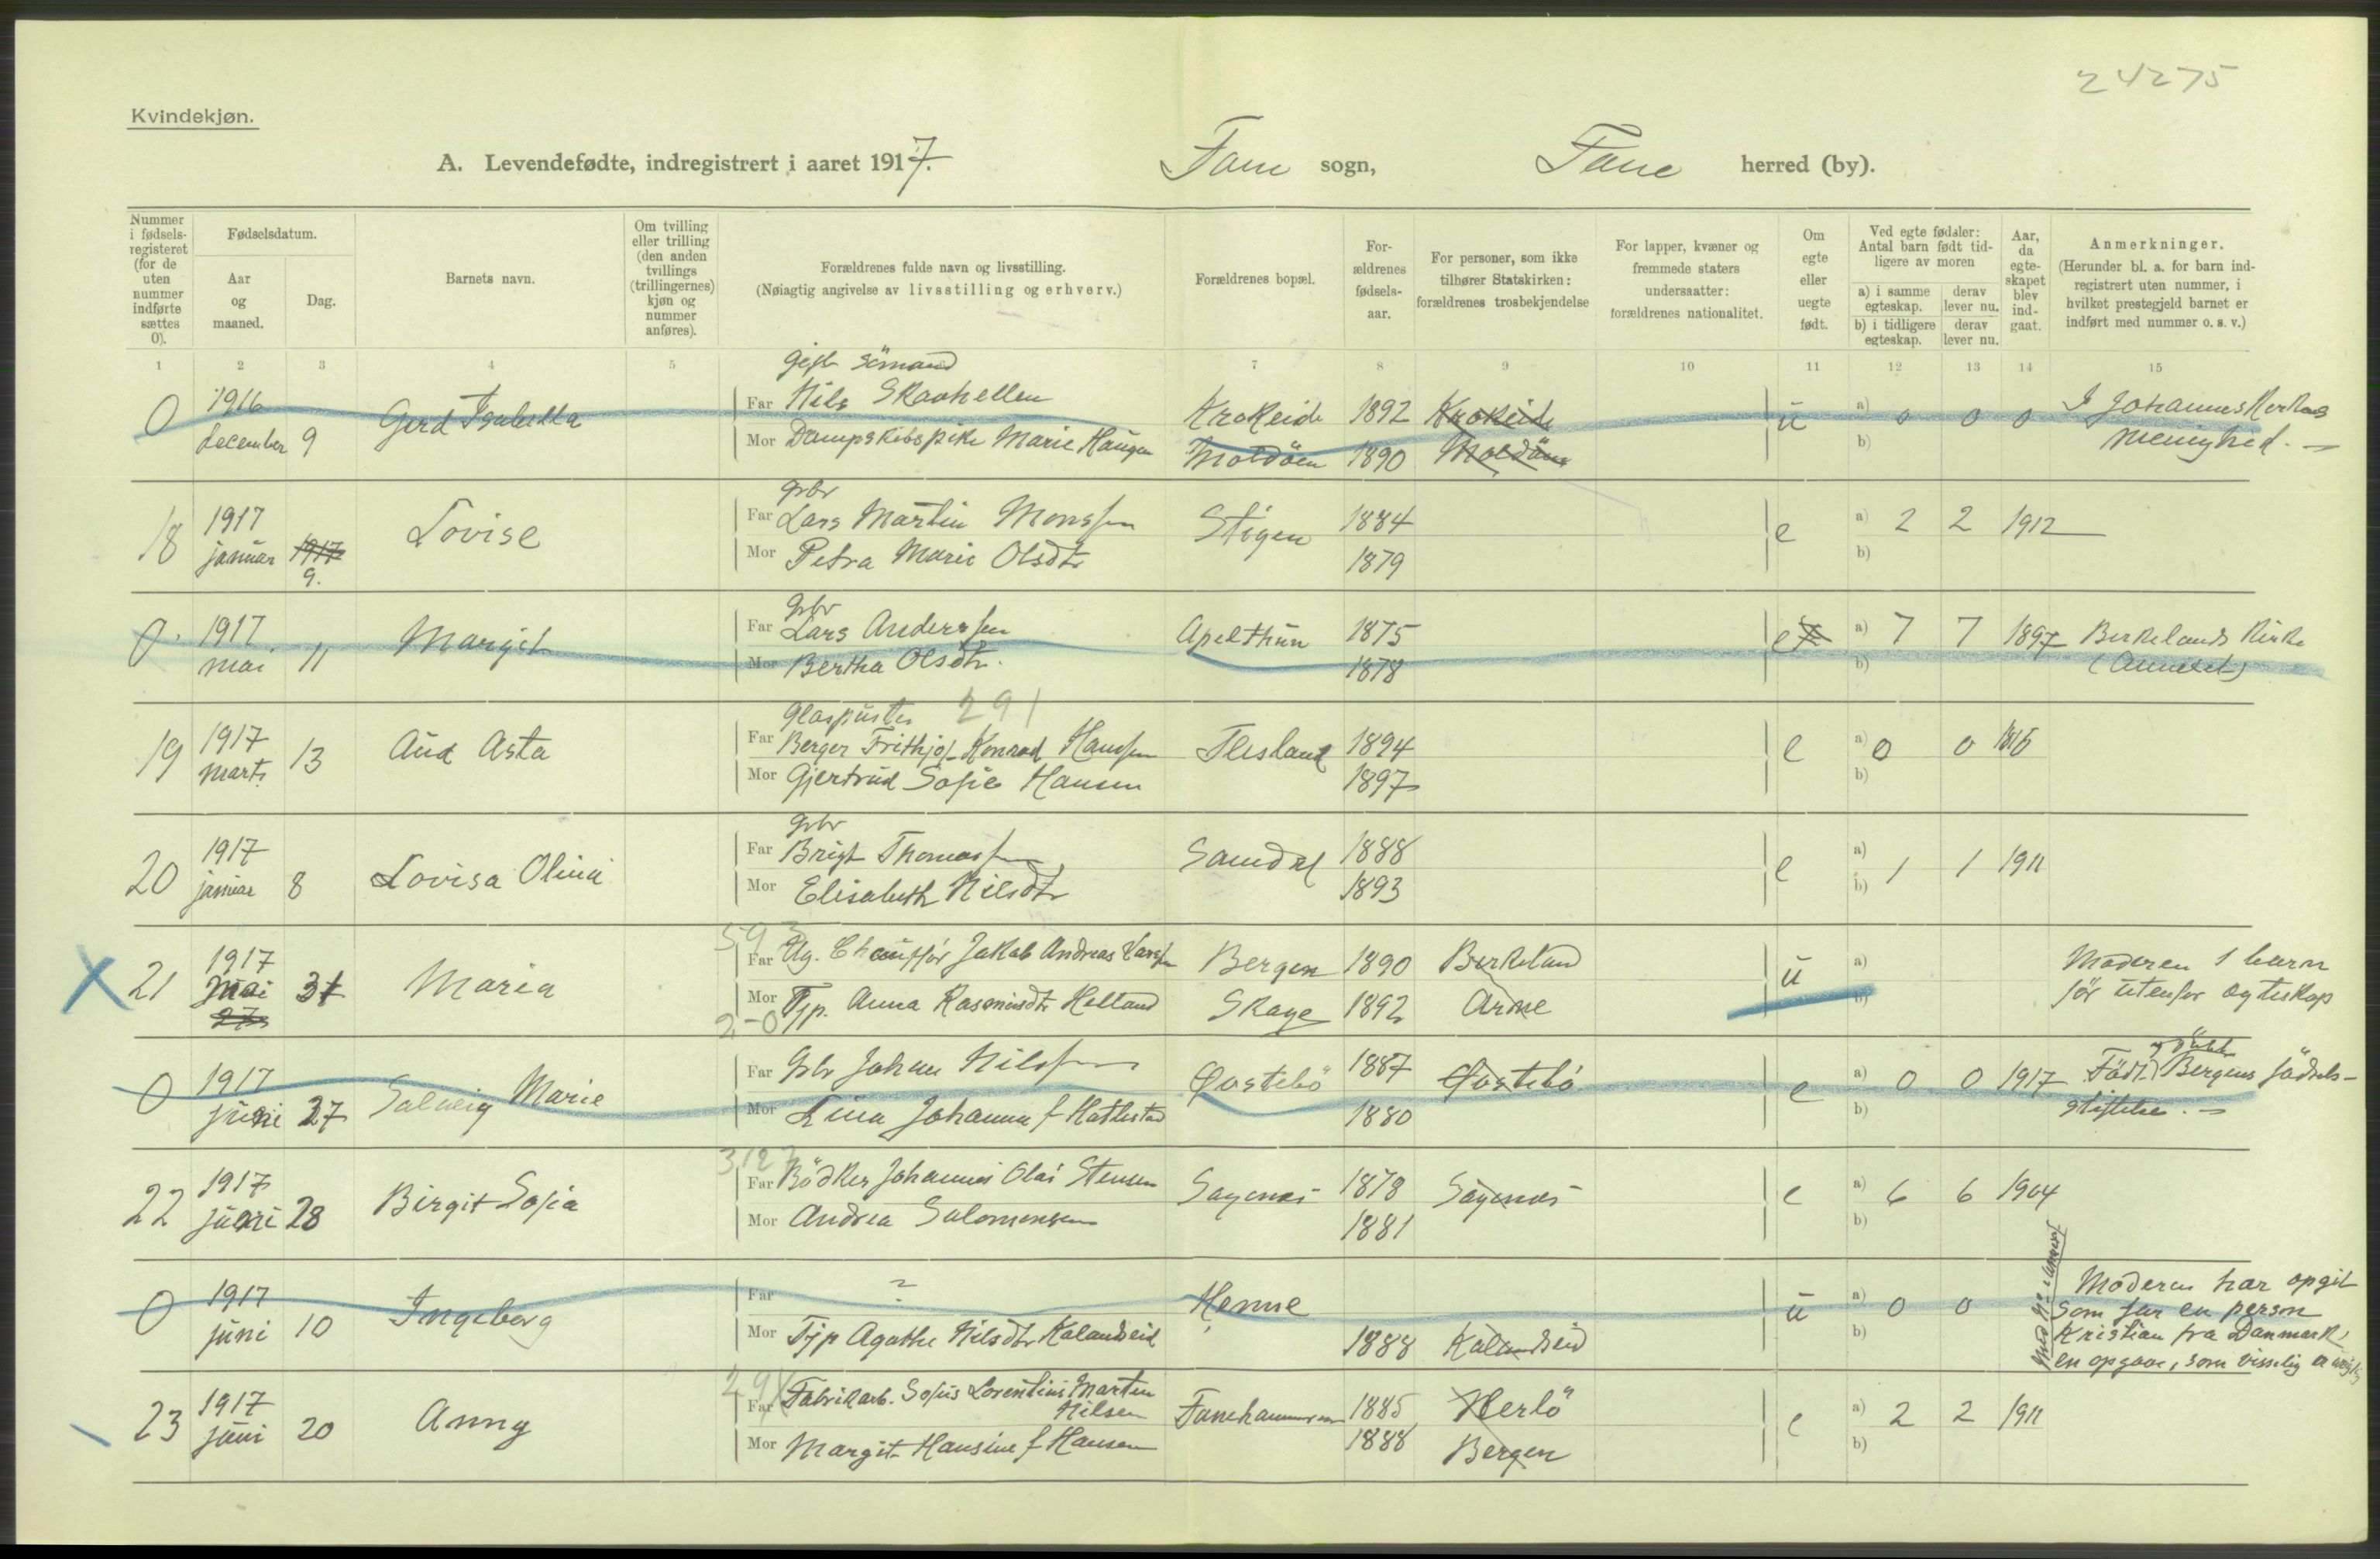 24275
Kvindekjøn.
A. Levendefødte, indregistrert i aaret 1917. Fane sogn, Fane herred (by).
Nummer i fødsels-registeret (for de uten nummer indførte sættes 0).
Fødselsdatum.
Aar og maaned.
Dag.
Barnets navn.
Om tvilling eller trilling (den anden tvillings (trillingernes) kjøn og nummer anføres).
Forældrenes fulde navn og livsstilling.
(Nøiagtig angivelse av livsstilling og erhverv.)
Forældrenes bopæl.
For-ældrenes fødsels-aar.
For personer, som ikke tilhører Statskirken: forældrenes trosbekjendelse
For lapper, kvæner og fremmede staters undersaatter: forældrenes nationalitet.
Om egte eller uegte født.
Ved egte fødsler: Antal barn født tid-ligere av moren
a) i samme egteskap. derav lever nu.
b) i tidligere egteskap. derav lever nu.
Aar, da egte-skapet blev ind-gaat.
Anmerkninger.
(Herunder bl. a. for barn ind-registrert uten nummer, i hvilket prestegjeld barnet er indført med nummer o. s. v.)
1 2 3 4 5 7 8 9 10 11 12 13 14 15
Gift Sömand
0 1916 december 9 Gerd Isabella
Far Nils Skaahellen Krokeide 1892 Krokeide ü a) 0 0 0 I Johanneskirkens
Mor Dampskibspike Marie Haugen Moldöen 1890 Moldöen b) menighed. —
Gbr
18 1917 januar 1917 9. Lovise
Far Lars Martin Monssen Stigen 1884 e a) 2 2 1912
Mor Petra Marie Olsdtr 1879 b)
Gbr
0 1917 mai 11 Margit
Far Lars Anderssen Apelthun 1875 e a) 7 7 1897 Birkelands Kirke
Mor Bertha Olsdtr. 1878 b) (Annexet)
Glaspuster 291
19 1917 marts 13 Aud Asta
Far Berger Frithjof Konrad Hanssen Flesland 1894 e a) 0 0 1916
Mor Gjertrud Sofie Hansen 1897 b)
Gbr
20 1917 januar 8 Lovisa Olina
Far Brigt Thomassen Samdal 1888 e a)
Mor Elisabeth Nilsdtr 1893 b) 1 1 1911
21 1917 Mai 27 31 Maria
Far Ug. Chauffør Jakob Andreas Larsen Bergen 1890 Birkeland ü a) Moderen 1 barn
2-0 Mor Tjp. Anna Rasmusdtr Helland Skage 1892 Arne b) før utenfor egteskap
0 1917 juni 27 Solveig Marie
Far Gbr Johan Nilssen Øvstebö 1887 Øvstebö e a) 0 0 1917 Födt Bergens fødsels-
Mor Lina Johanna f Hatlestad 1880 b) stiftelse. —
3127
22 1917 juni 28 Birgit Sofia
Far Bödker Johannes Olai Stensen Sagenes 1878 Sagenes e a) 6 6 1904
Mor Andrea Salomonsen 1881 b)
0 1917 juni 10 Ingeborg
Far ? Henne ü a) 0 0 Moderen har opgit
Mor Tjp Agathe Nilsdtr Kalandseid 1888 Kalandseid b) som far en person
Kristian fra Danmark,
en opgave, som visselig er
23 1917 juni 20 Anny
Far Fabrikarb. Sofus Lorentius Marten Nilsen Fanehammeren 1885 Herlö e a) 2 2 1911
Mor Margit Hansine f Hansen 1888 Bergen b)